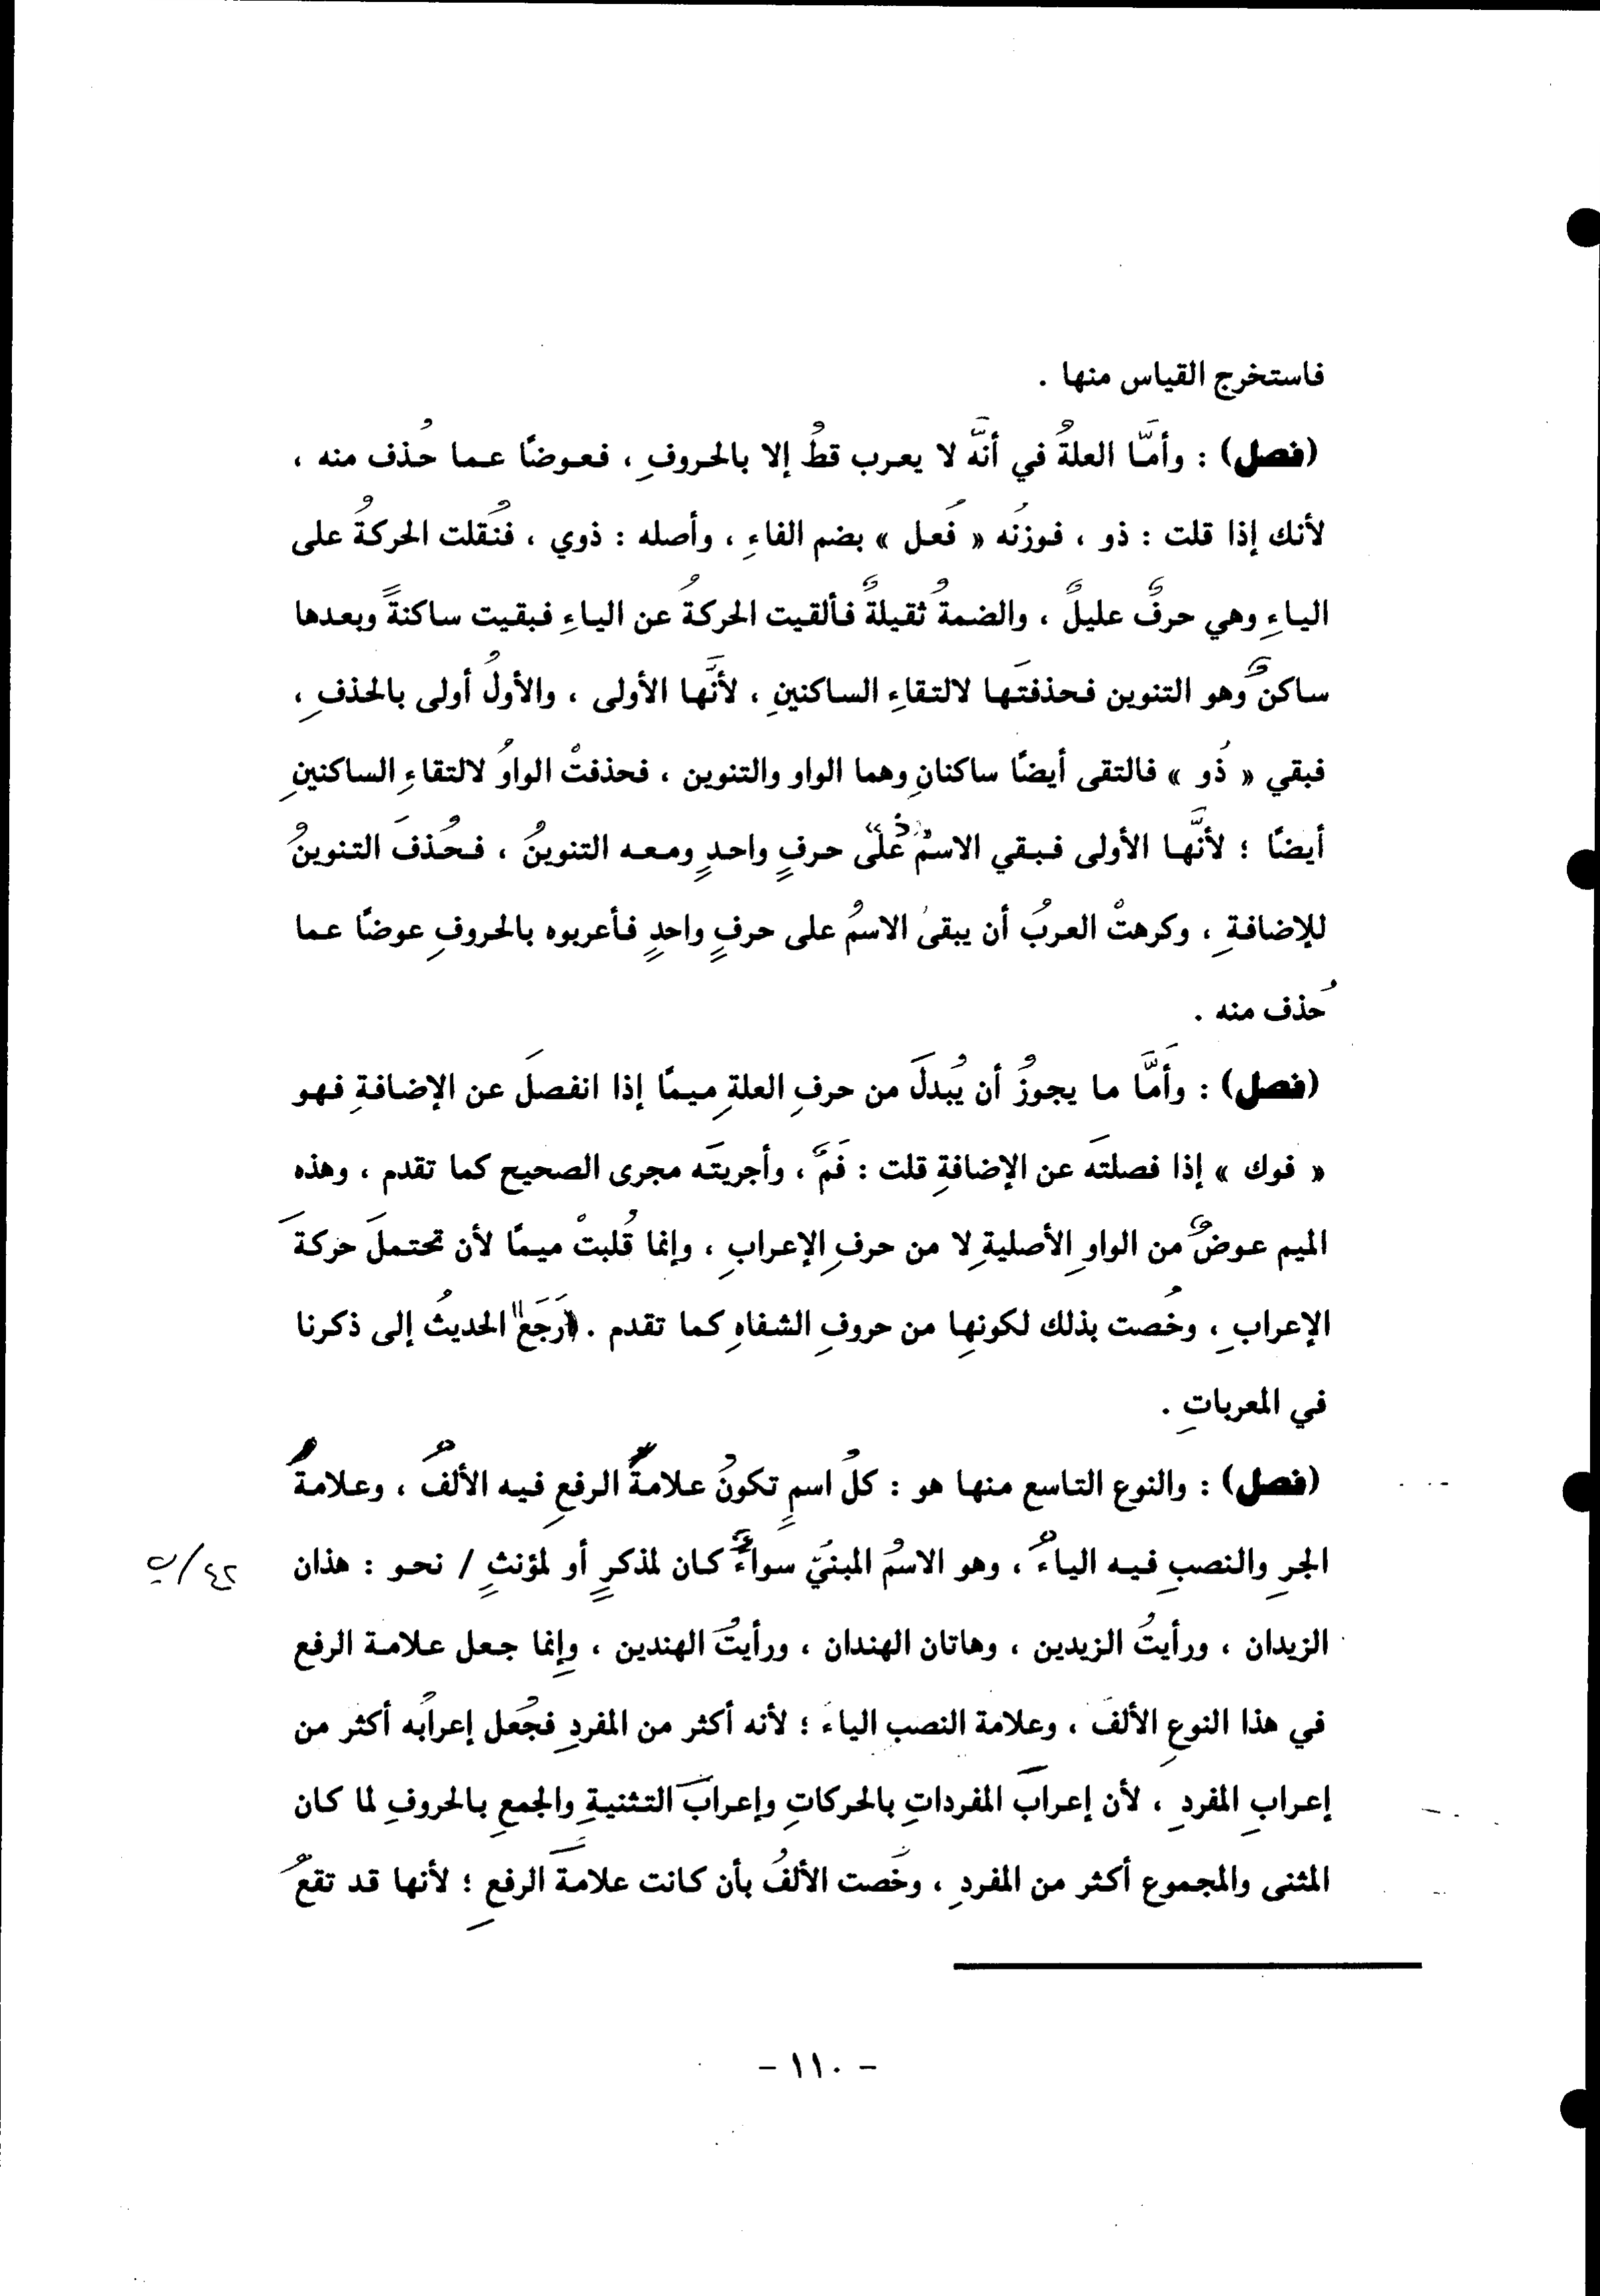 فاستخرج القياس منها .
(فصل) : وأمَّا العلةُ في أنَّه لا يعرب قطُ إلا بالحروفِ ، فعوضًا عما حُذف منه ،
لأنك إذا قلت : ذو ، فوزنُه « فَعل » بضم الفاءِ ، وأصله : ذوي ، فنُقلت الحركةُ على
الياءِ وهي حرفٌ عليلٌ ، والضمةُ ثقيلةٌ فألقيت الحركةُ عن الياءِ فبقيت ساكنةً وبعدها
ساكنٌ وهو التنوين فحذفتَها لالتقاءِ الساكنينِ ، لأنَّها الأولى ، والأولُ أولى بالحذفِ ،
فبقي « ذُو » فالتقى أيضًا ساكنانِ وهما الواو والتنوين ، فحذفتْ الواوُ لالتقاءِ الساكنينِ
أيضًا ؛ لأنَّها الأولى فبقي الاسمُ على حرفٍ واحدٍ ومعه التنوينُ ، فحُذفَ التنوينُ
للإضافةِ ، وكرهتْ العربُ أن يبقى الاسمُ على حرفٍ واحدٍ فأعربوه بالحروفِ عوضًا عما
حُذف منه .
(فصل) : وأمَّا ما يجوزُ أن يُبدلَ من حرفِ العلةِ ميمًا إذا انفصلَ عن الإضافةِ فهو
« فوك » إذا فصلتَه عن الإضافةِ قلت : فَمٌ ، وأجريتَه مجرى الصحيح كما تقدم ، وهذه
الميم عوضٌ من الواوِ الأصليةِ لا من حرفِ الإعرابِ ، وإنما قُلبتْ ميمًا لأن تحتملَ حركةَ
الإعرابِ ، وخُصت بذلك لكونِها من حروفِ الشفاهِ كما تقدم . رَجَعَ الحديثُ إلى ذكرنا
في المعرباتِ .
(فصل) : والنوع التاسع منها هو : كلُ اسمٍ تكونُ علامةُ الرفعِ فيه الألفُ ، وعلامةُ
الجرِ والنصبِ فيه الياءُ ، وهو الاسمُ المبنيّ سواءٌ كان لمذكرٍ أو لمؤنثٍ / نحو : هذان
٤٢/ب
الزيدان ، ورأيتُ الزيدين ، وهاتان الهندان ، ورأيتُ الهندين ، وإنما جعل علامة الرفع
في هذا النوعِ الألفَ ، وعلامة النصب الياءَ ؛ لأنه أكثر من المفردِ فجُعل إعرابُه أكثر من
إعرابِ المفردِ ، لأن إعرابَ المفرداتِ بالحركاتِ وإعرابَ التثنيةِ والجمعِ بالحروفِ لما كان
المثنى والمجموع أكثر من المفردِ ، وخُصت الألفُ بأن كانت علامةَ الرفعِ ؛ لأنها قد تقعُ
- ١١٠ -